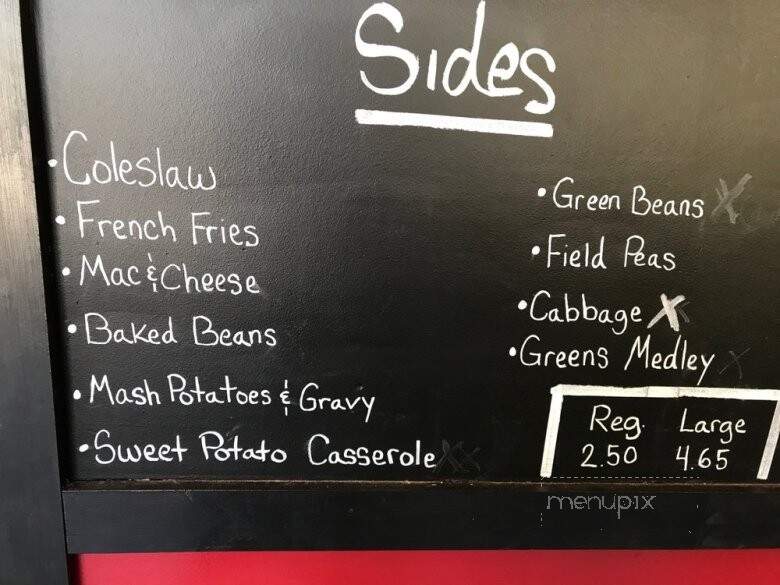 Sides
• Coleslaw
• French Fries
• Mac & Cheese
• Baked Beans
• Mash Potatoes & Gravy
• Sweet Potato Casserole
• Green Beans X
• Field Peas
• Cabbage X
• Greens Medley X
Reg. Large
2.50 4.65
menupix